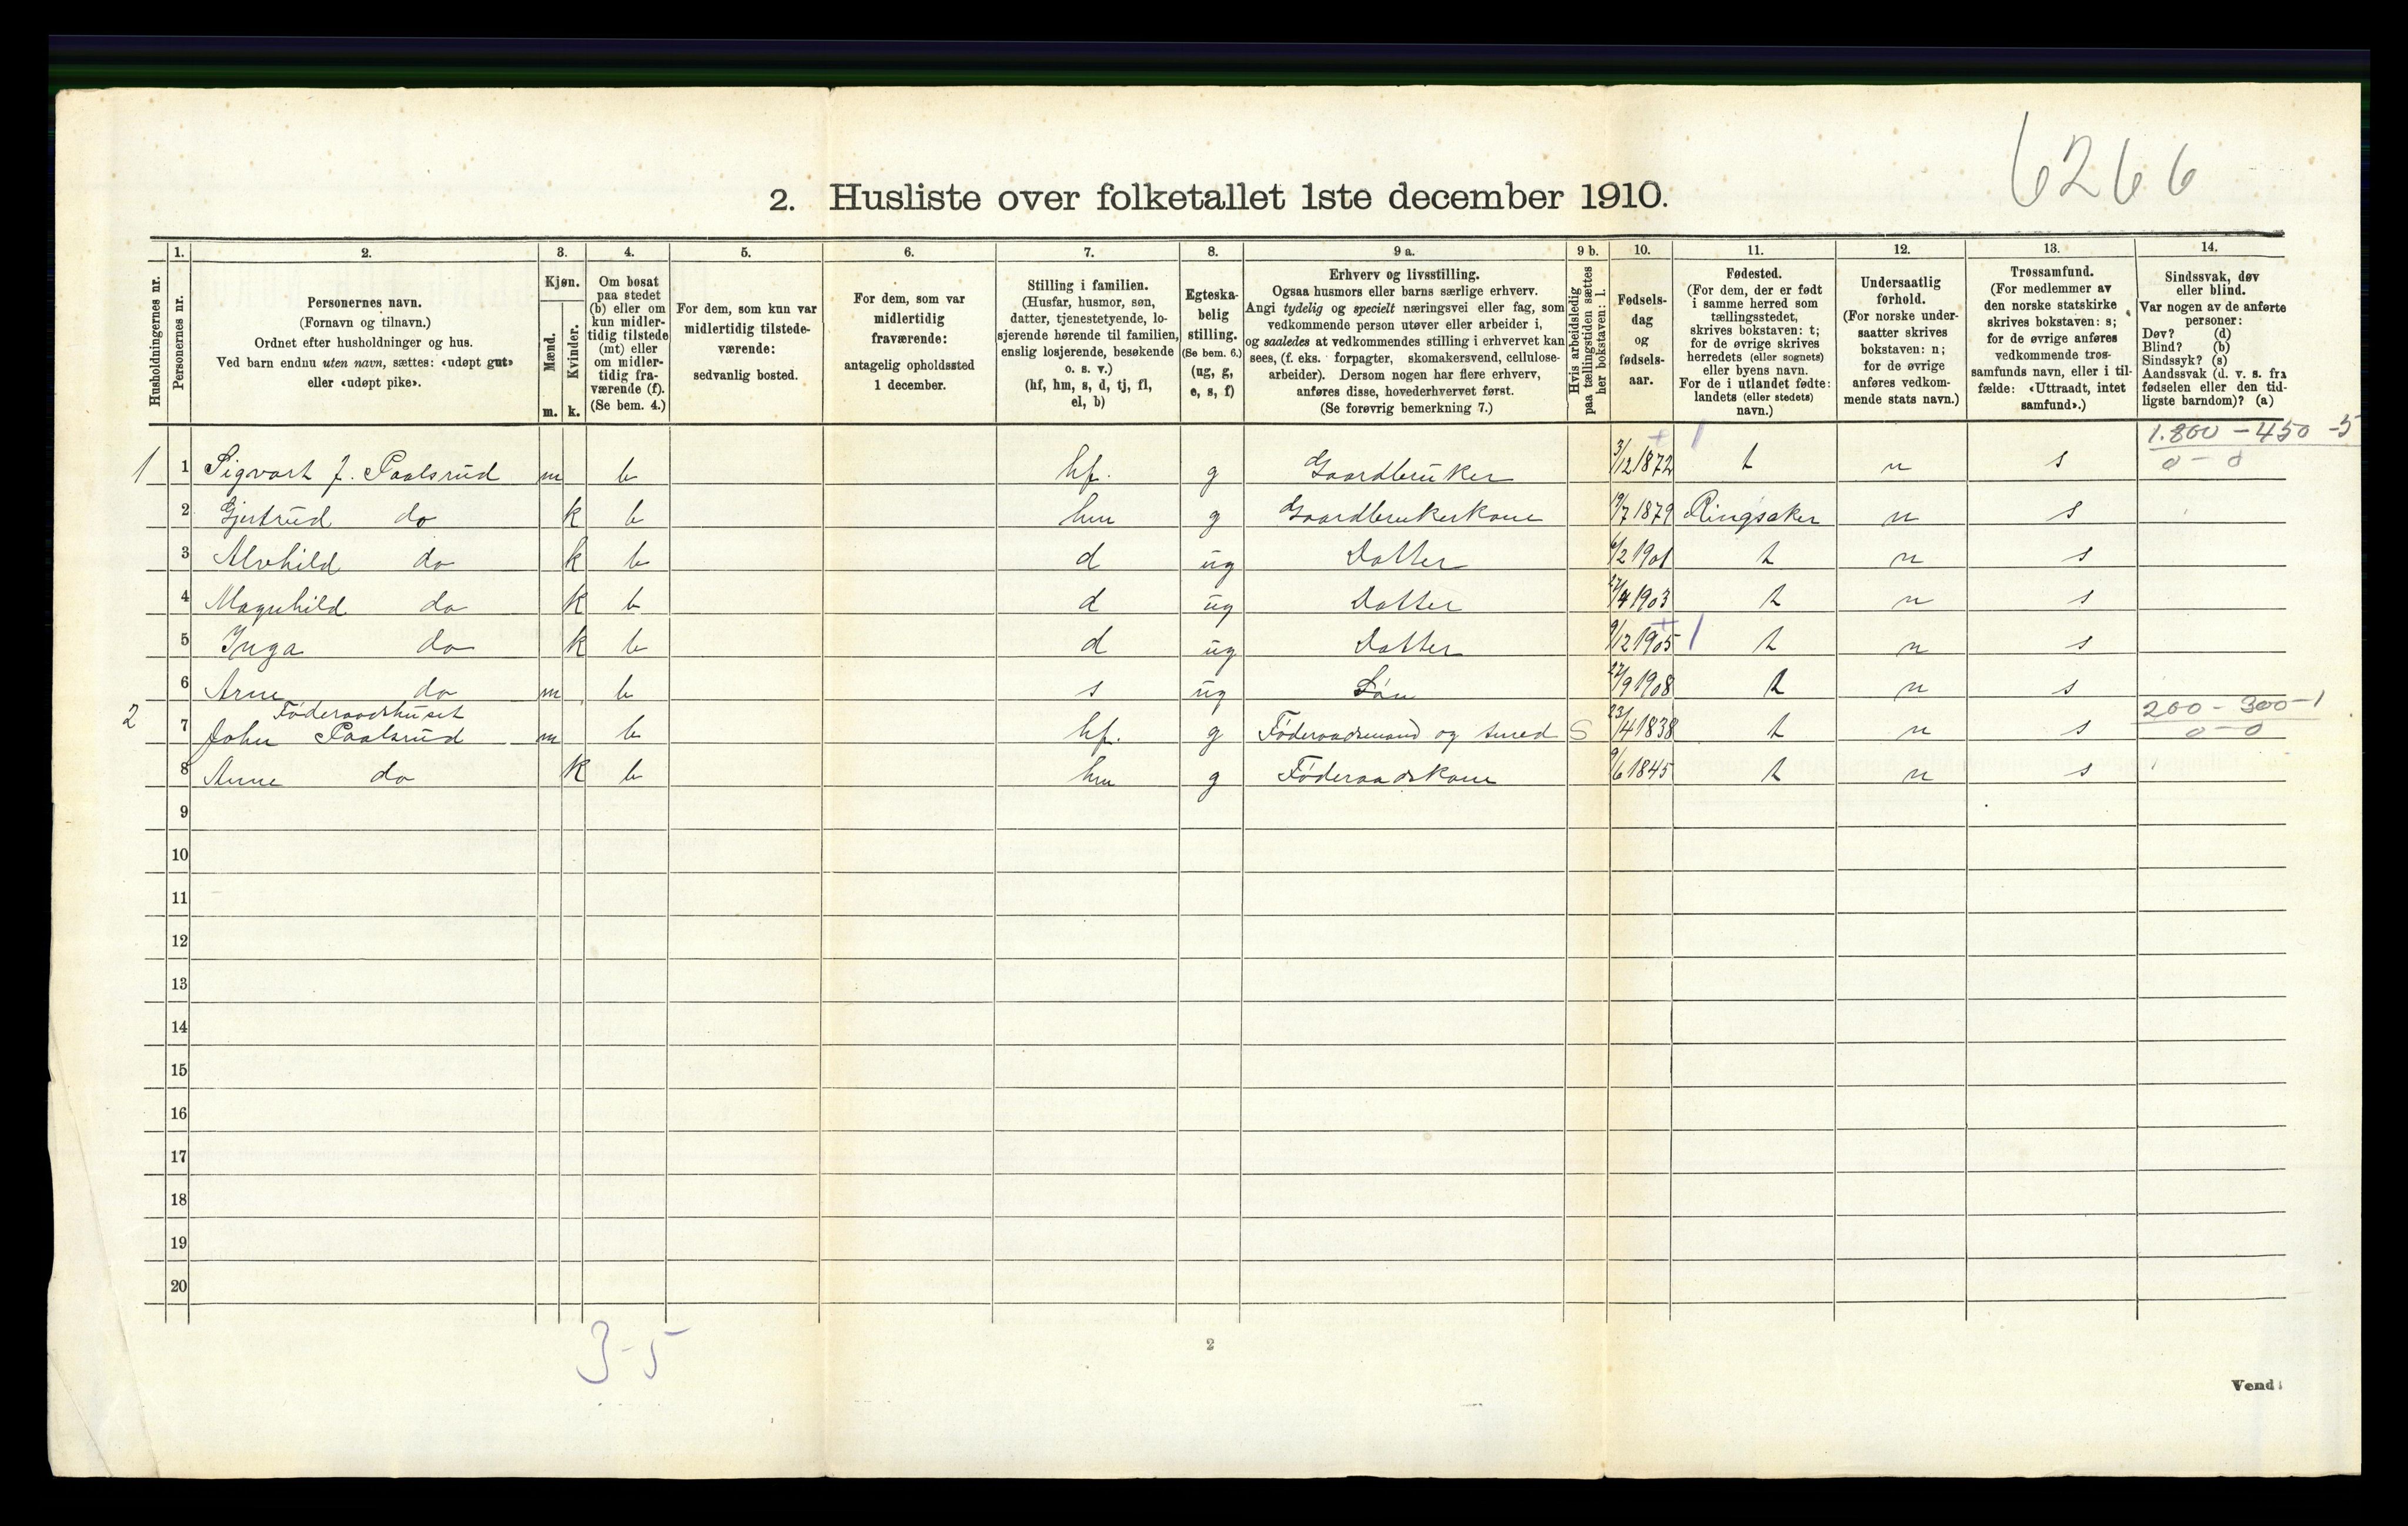 6266
2. Husliste over folketallet 1ste december 1910.
Husholdningernes nr.
1.
Personernes nr.
2.
Personernes navn.
(Fornavn og tilnavn.)
Ordnet efter husholdninger og hus.
Ved barn endnu uten navn, sættes: «udøpt gut»
eller «udøpt pike».
3.
Kjøn.
Mænd.
m.
Kvinder.
k.
4.
Om bosat
paa stedet
(b) eller om
kun midler-
tidig tilstede
(mt) eller
om midler-
tidig fra-
værende (f).
(Se bem. 4.)
5.
For dem, som kun var
midlertidig tilstede-
værende:
sedvanlig bosted.
6.
For dem, som var
midlertidig
fraværende:
antagelig opholdssted
1 december.
7.
Stilling i familien.
(Husfar, husmor, søn,
datter, tjenestetyende, lo-
sjerende hørende til familien,
enslig losjerende, besøkende
o. s. v.)
(hf, hm, s, d, tj, fl,
el, b)
8.
Egteska-
belig
stilling.
(Se bem. 6.)
(ug, g,
e, s, f)
9 a.
Erhverv og livsstilling.
Ogsaa husmors eller barns særlige erhverv.
Angi tydelig og specielt næringsvei eller fag, som
vedkommende person utøver eller arbeider i,
og saaledes at vedkommendes stilling i erhvervet kan
sees, (f. eks. forpagter, skomakersvend, cellulose-
arbeider). Dersom nogen har flere erhverv,
anføres disse, hovederhvervet først.
(Se forøvrig bemerkning 7.)
9 b.
Hvis arbeidsledig
paa tællingstiden sættes
her bokstaven: l.
10.
Fødsels-
dag
og
fødsels-
aar.
11.
Fødested.
(For dem, der er født
i samme herred som
tællingsstedet,
skrives bokstaven: t;
for de øvrige skrives
herredets (eller sognets)
eller byens navn.
For de i utlandet fødte:
landets (eller stedets)
navn.)
12.
Undersaatlig
forhold.
(For norske under-
saatter skrives
bokstaven: n;
for de øvrige
anføres vedkom-
mende stats navn.)
13.
Trossamfund.
(For medlemmer av
den norske statskirke
skrives bokstaven: s;
for de øvrige anføres
vedkommende tros-
samfunds navn, eller i til-
fælde: «Uttraadt, intet
samfund».)
14.
Sindssvak, døv
eller blind.
Var nogen av de anførte
personer:
Døv? (d)
Blind? (b)
Sindssyk? (s)
Aandssvak (d. v. s. fra
fødselen eller den tid-
ligste barndom)? (a)
1.800 - 450 - 5
0 - 0
1 1 Sigvart J. Paalsrud m b hf. g Gaardbruker 3/12 1872 t n s
2 Gjertrud do k b hm g Gaardbrukerkone 19/7 1879 Ringsaker n s
3 Alvhild do k b d ug Datter 6/2 1901 t n s
4 Magnhild do k b d ug Datter 27/4 1903 t n s
5 Inga do k b d ug Datter 9/12 1905 t n s
6 Arne do m b s ug Søn 27/9 1908 t n s
Føderaadshuset
200 - 300 - 1
0 - 0
2 7 John Paalsrud m b hf. g Føderaadsmand og smed S 23/4 1838 t n s
8 Anne do k b hm g Føderaadskone 9/6 1845 t n s
9
10
11
12
13
14
15
16
17
18
19
20
3-5
2
Vend!